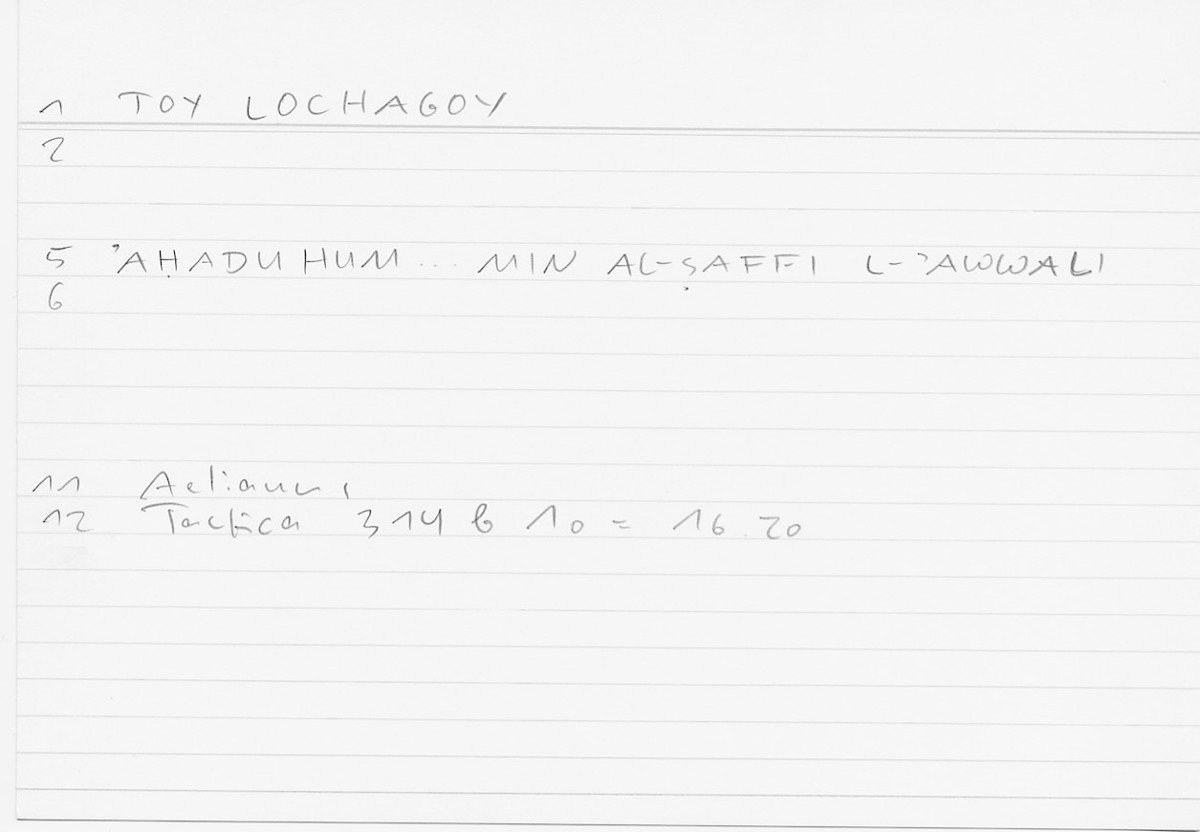 1 TOY LOCHAGOY
2
5 ʾAḤADUHUM... MIN AL-ṢAFFI L-ʾAWWALI
6
11 Aelianus,
12 Tactica 314 b 10 = 16.20